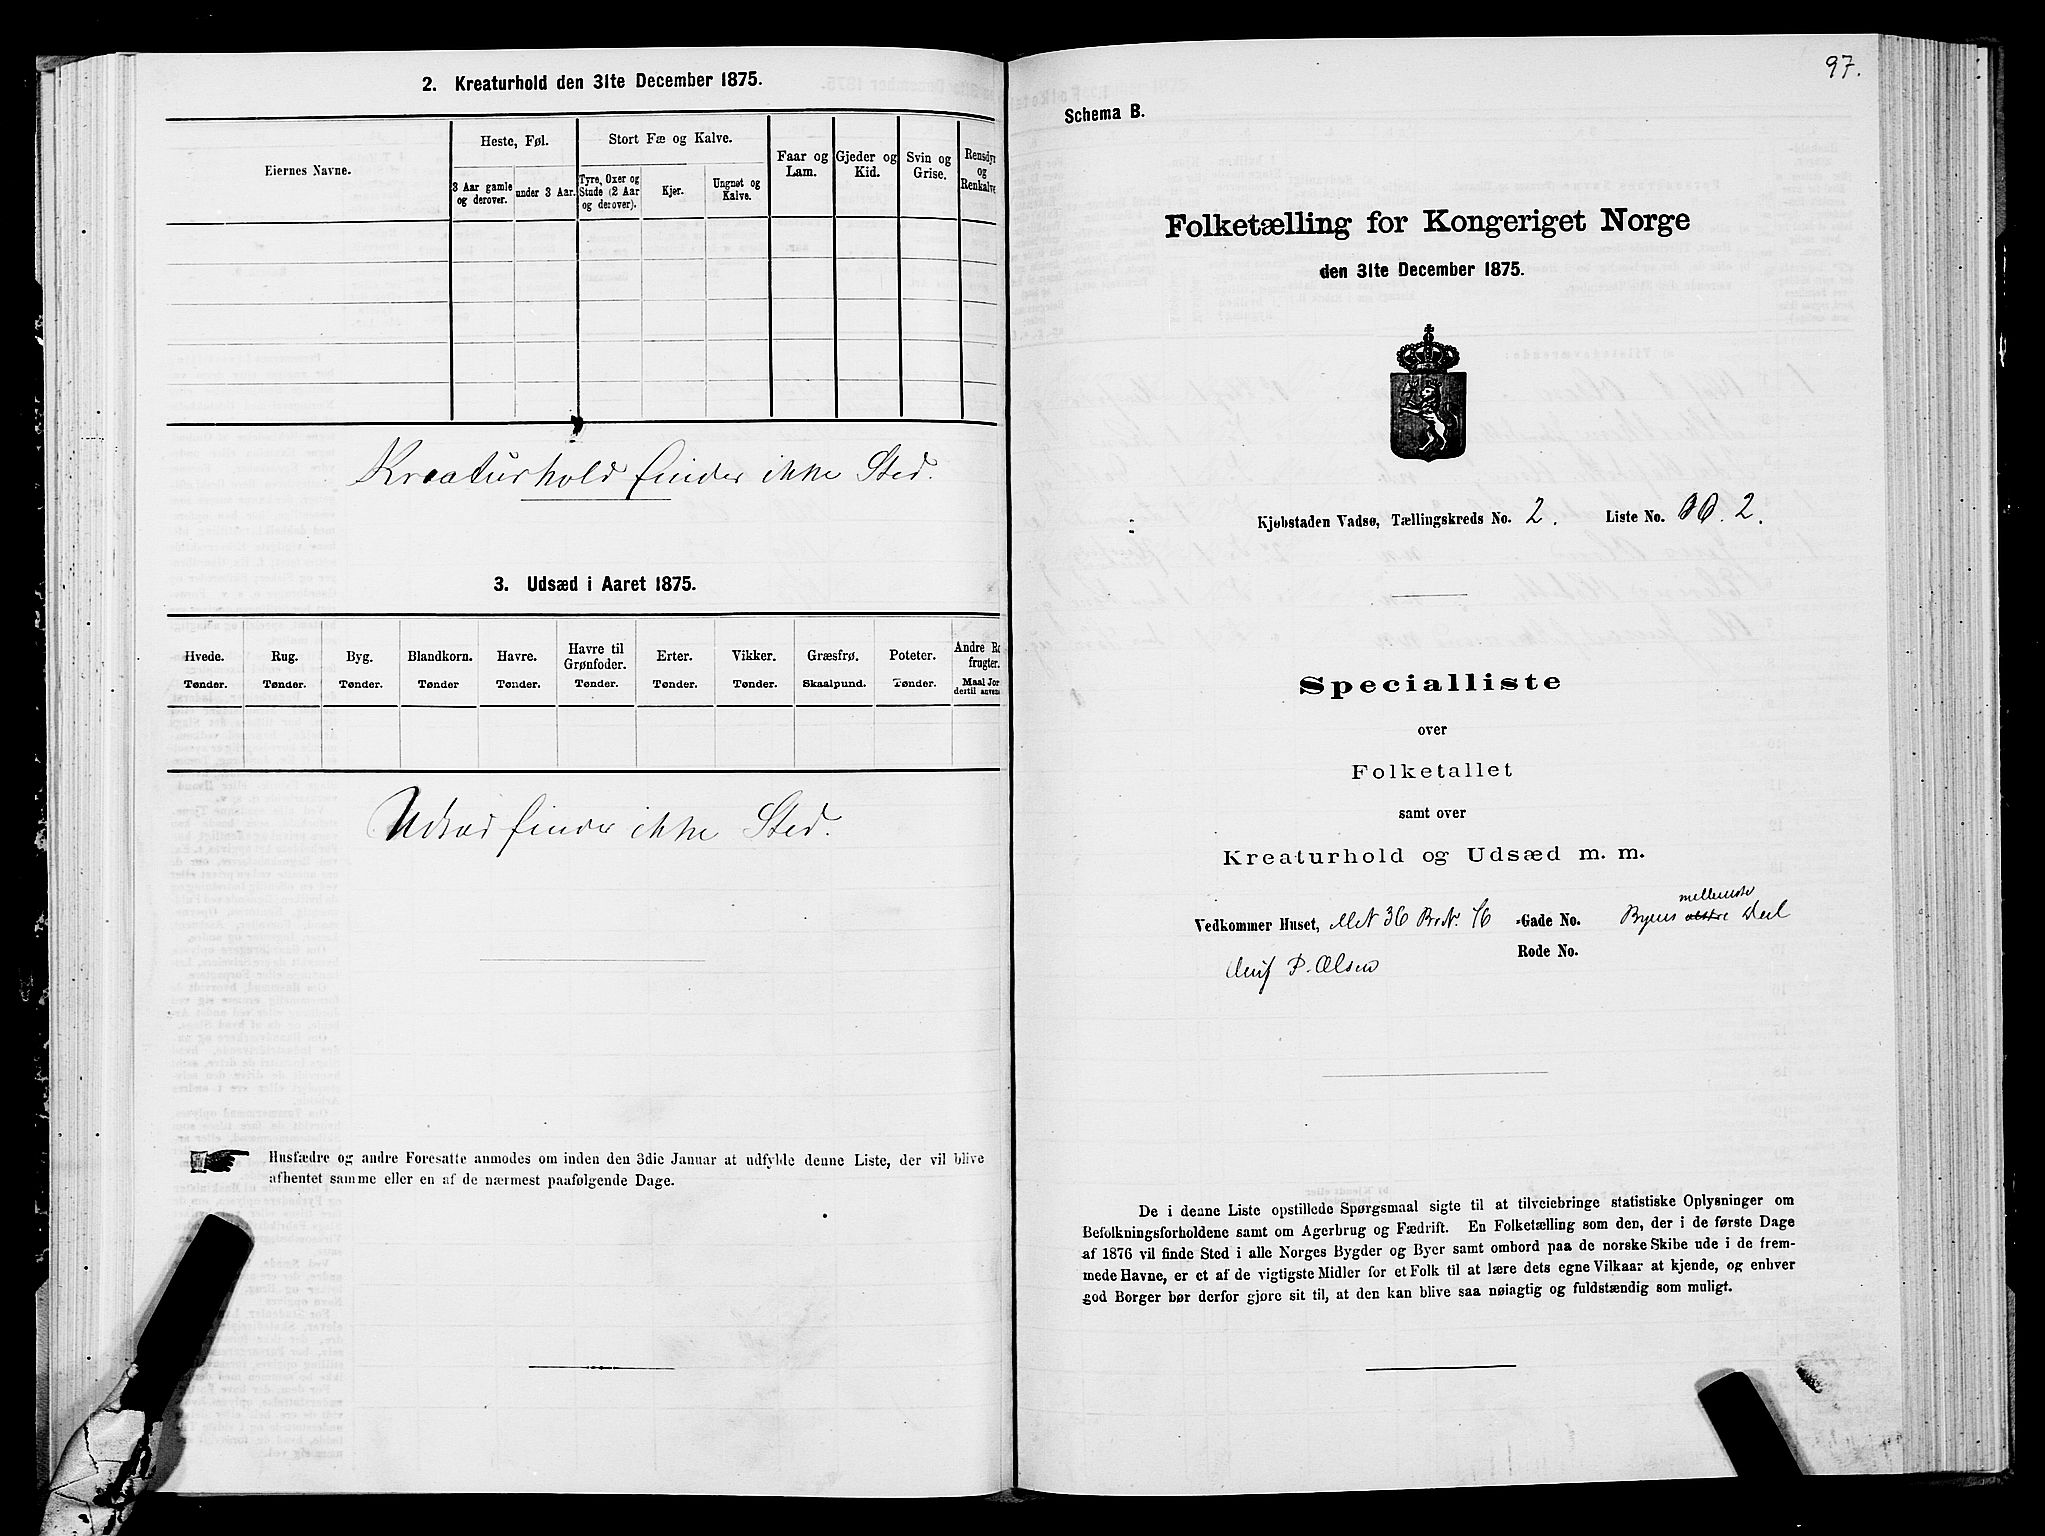 2. Kreaturhold den 31te December 1875.
Eiernes Navne.
Heste, Føl.
Stort Fæ og Kalve.
Faar og
Lam.
Gjeder og
Kid.
Svin og
Grise.
Rensdyr
og
Renkalve
3 Aar gamle
og derover.
under 3 Aar.
Tyre, Oxer og
Stude (2 Aar
og derover).
Kjør.
Ungnøt og
Kalve.
Kreaturhold finder ikke Sted.
3. Udsæd i Aaret 1875.
Hvede.
Tønder.
Rug.
Tønder.
Byg.
Tønder.
Blandkorn.
Tønder
Havre.
Tønder.
Havre til
Grønfoder.
Tønder.
Erter.
Tønder.
Vikker.
Tønder.
Græsfrø.
Skaalpund.
Poteter.
Tønder.
Andre Ro
frugter.
Maal Jor
dertil anvend
Udsæd finder ikke Sted.
Husfædre og andre Foresatte anmodes om inden den 3die Januar at udfylde denne Liste, der vil blive
afhentet samme eller en af de nærmest paafølgende Dage.
97.
Schema B.
Folketælling for Kongeriget Norge
den 31te December 1875.
Kjøbstaden Vadsø, Tællingskreds No. 2. Liste No. 2.
Specialliste
over
Folketallet
samt over
Kreaturhold og Udsæd m. m.
mellemste
Vedkommer Huset, Mat N 36 Br N. 76 -Gade No. Byens østre Deel
Rode No.
P. Olsen
De i denne Liste opstillede Spørgsmaal sigte til at tilveiebringe statistiske Oplysninger om
Befolkningsforholdene samt om Agerbrug og Fædrift. En Folketælling som den, der i de første Dage
af 1876 vil finde Sted i alle Norges Bygder og Byer samt ombord paa de norske Skibe ude i de frem-
mede Havne, er et af de vigtigste Midler for et Folk til at lære dets egne Vilkaar at kjende, og enhver
god Borger bør derfor gjøre sit til, at den kan blive saa nøiagtig og fuldstændig som muligt.